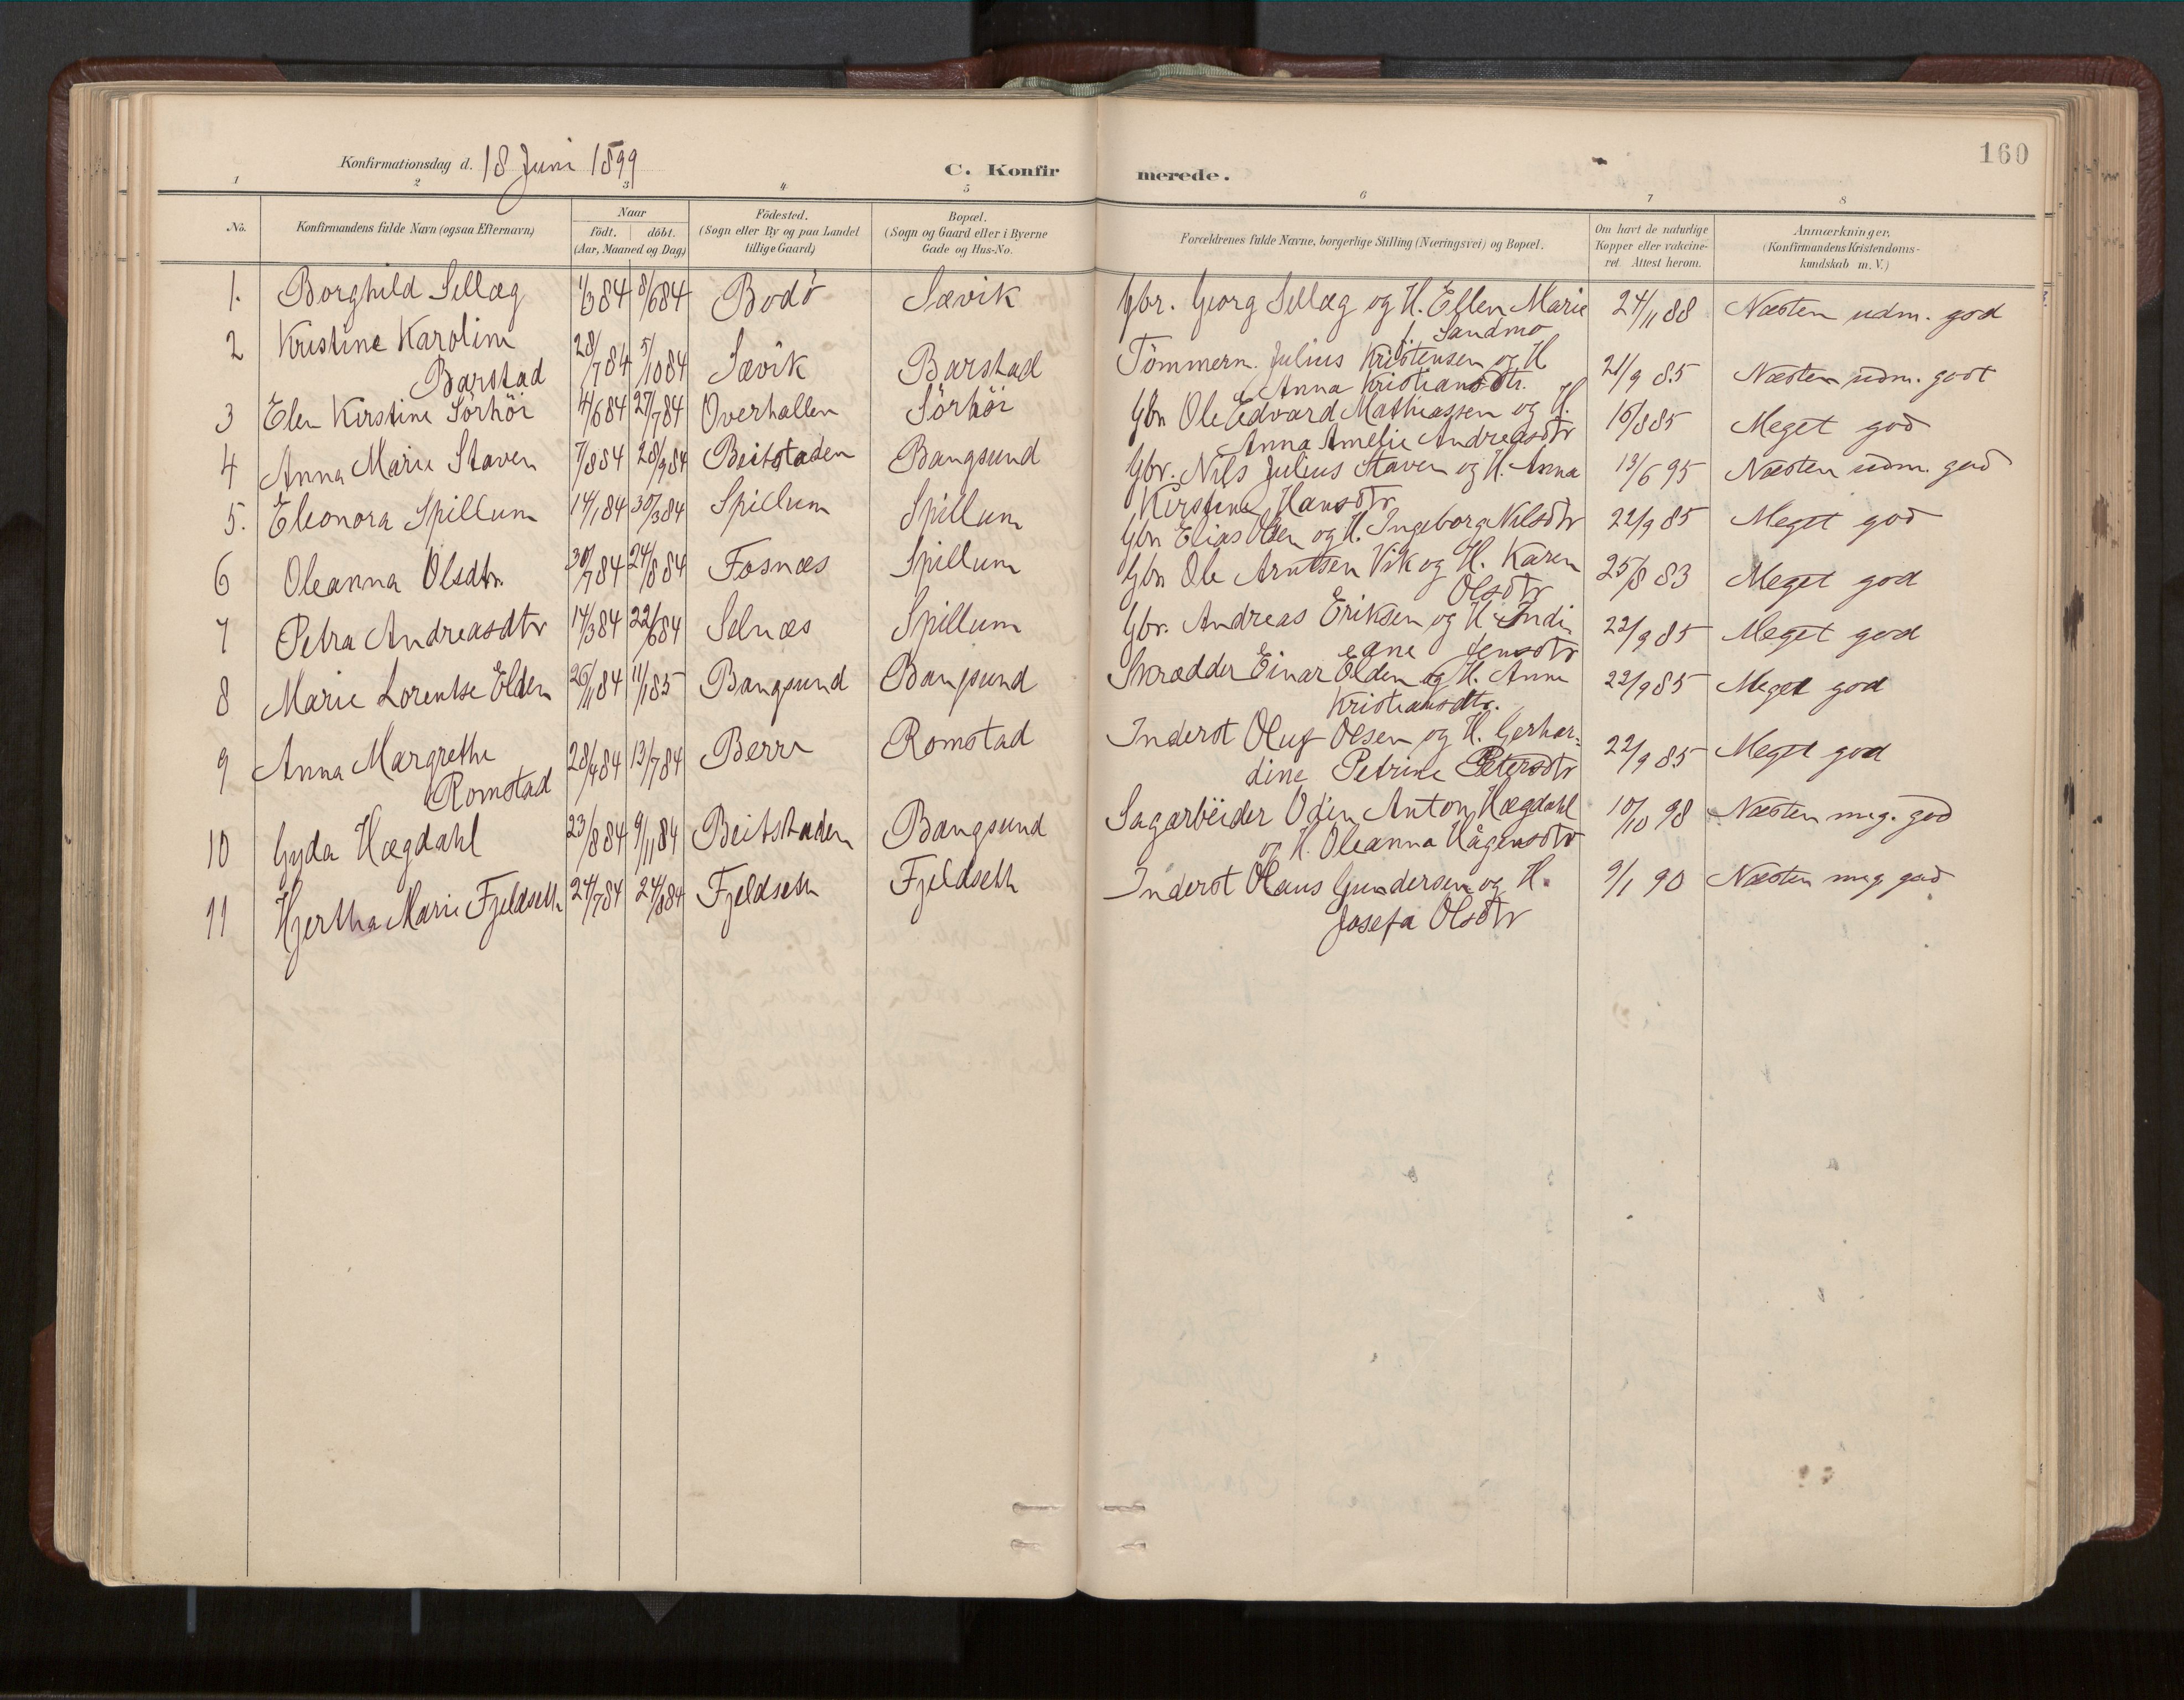 160
Konfirmationsdag d. 18 Juni 1899
C. Konfirmerede.
1 2 3 4 5 6 7 8
No. Konfirmandens fulde Navn (ogsaa Efternavn) Naar födt. döbt. (Aar, Maaned og Dag) Födested. (Sogn eller By og paa Landet tillige Gaard) Bopæl. (Sogn og Gaard eller i Byerne Gade og Hus-No. Forældrenes fulde Navne, borgerlige Stilling (Næringsvei) og Bopæl. Om havt de naturlige Kopper eller vakcineret Attest herom. Anmærkninger. (Konfirmandens Kristendomskundskab m.V.)
1. Borghild Sellæg 1/3 84 8/6 84 Bodö Sævik Gbr. Georg Sellæg og H. Ellen Marie f. Sandmo 24/11 88 Næsten udm. god
2 Kristine Karoline Barstad 28/7 84 5/10 84 Sævik Barstad Tömmerm. Julius Kristensen og H Anna Kristiansdtr. 21/9 85 Næsten udm. godt
3 Elen Kirstine Sörhöi 4/6 84 27/7 84 Overhallen Sörhöi Gbr Ole Edvard Mathiassen og H. Anna Amelie Andreasdtr 16/8 85 Meget god
4 Anna Marie Staven 7/8 84 28/9 84 Beitstaden Bangsund Gbr. Nils Julius Staven og H. Anna Kirstine Hansdtr 13/6 95 Næsten udm. god
5. Eleonora Spillum 14/1 84 30/3 84 Spillum Spillum Gbr Elias Olsen og H. Ingeborg Nilsdtr 22/9 85 Meget god
6 Oleanna Olsdtr. 30/7 84 24/8 84 Fosnæs Spillum Gbr Ole Arntsen Vik og H. Karen Olsdtr 25/8 83 Meget god
7 Petra Andreasdtr 14/3 84 22/6 84 Selnæs Spillum Gbr. Andreas Eriksen og H Indi eane Jensdtr 22/9 85 Meget god
8 Marie Lorentse Elden 26/11 84 11/1 85 Bangsund Bangsund Skrædder Einar Elden og H. Anne Kristiansdtr. 22/9 85 Meget god
9 Anna Margrethe Romstad 28/4 84 13/7 84 Berre Romstad Inderst Oluf Olsen og H. Gerhardine Petrine Petersdtr 22/9 85 Meget god
10 Gyda Hægdahl 23/8 84 9/11 84 Beitstaden Bangsund Sagarbeider Odin Anton Hægdahl og H. Oleanna Hågensdtr 10/10 98 Næsten meg. god
11 Hjertha Marie Fjeldseth 24/7 84 24/8 84 Fjeldseth Fjeldseth Inderst Olaus Gundersen og H. Josefa Olsdtr 9/1 90 Næsten meg god